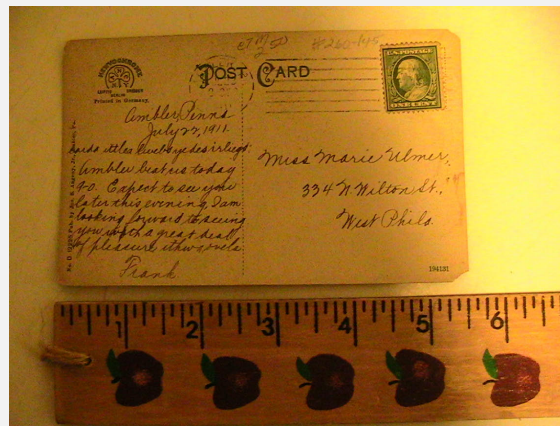 POST CARD
Printed in Germany.
U.S. POSTAGE
ONE CENT
Ambler Penna
July 27, 1911.
Ambler beat us today
9-0. Expect to see you
later this evening. I am
looking forward to seeing
you with a great deal
of pleasure
Frank
Miss Marie Ulmer,
334 N. Wilton St.,
West Phila.
194131
1 2 3 4 5 6